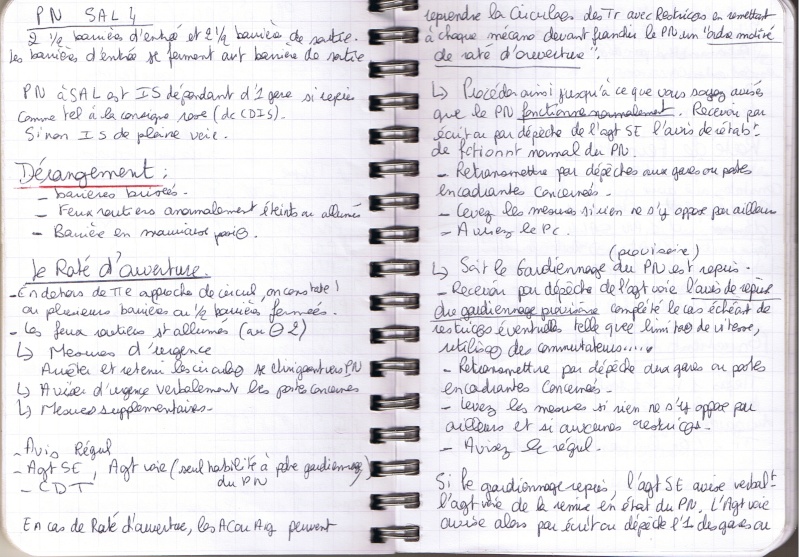 PN SAL 4
2 ½ barrières d'entrée et 2 ½ barrière de sortie.
Les barrières d'entrée se ferment avt barrière de sortie
PN à SAL est IS dépendant d'1 gare si repris
comme tel à la consigne rose (dc CDIS).
Sinon IS de pleine voie.
Dérangement :
- barrières brisées.
- Feux routiers anormalement éteints ou allumés
- Barrière en mauvaise
Le Raté d'ouverture.
- En dehors de tte approche de circul, on constate 1
ou plusieurs barrières ou ½ barrières fermées.
- Les feux routiers st allumés (au 2)
↳ Mesures d'urgence
Arrêter et retenir les circul se dirigeant vers PN
↳ Aviser d'urgence verbalement les postes concernés
↳ Mesures supplémentaires -
- Avis Régul
- Agt SE, Agt voie (seul habilité à pdre gardiennage
du PN)
- CDT
En cas de Raté d'ouverture, les AC ou Aig peuvent
reprendre la Circulation des Tr avec Restrictions en remettant
à chaque mécano devant franchir le PN un "ordre motivé
de raté d'ouverture".
↳ Procéder ainsi jusqu'à ce que vous soyez avisés
que le PN fonctionne normalement. Recevoir par
écrit ou par dépêche de l'agt SE l'avis de rétabt
de fctionnt normal du PN.
- Retransmettre par dépêches aux gares ou postes
encadrantes concernés.
- Levez les mesures si rien ne s'y oppose par ailleurs
- Avisez le PC.
(provisoire)
↳ Soit le Gardiennage du PN est repris.
- Recevoir par dépêche de l'agt voie l'avis de reprise
du gardiennage provisoire complété le cas échéant de
restrictions éventuelles telle que limitation de vitesse,
utilisation des commutateurs.....
- Retransmettre par dépêche aux gares ou postes
encadrantes concernés.
- Levez les mesures si rien ne s'y oppose par
ailleurs et si aucunes restrictions.
- Avisez le régul.
Si le gardiennage repris, l'agt SE avise verbalt
l'agt voie de la remise en état du PN. L'Agt voie
avise alors par écrit ou dépêche l'1 des gares ou